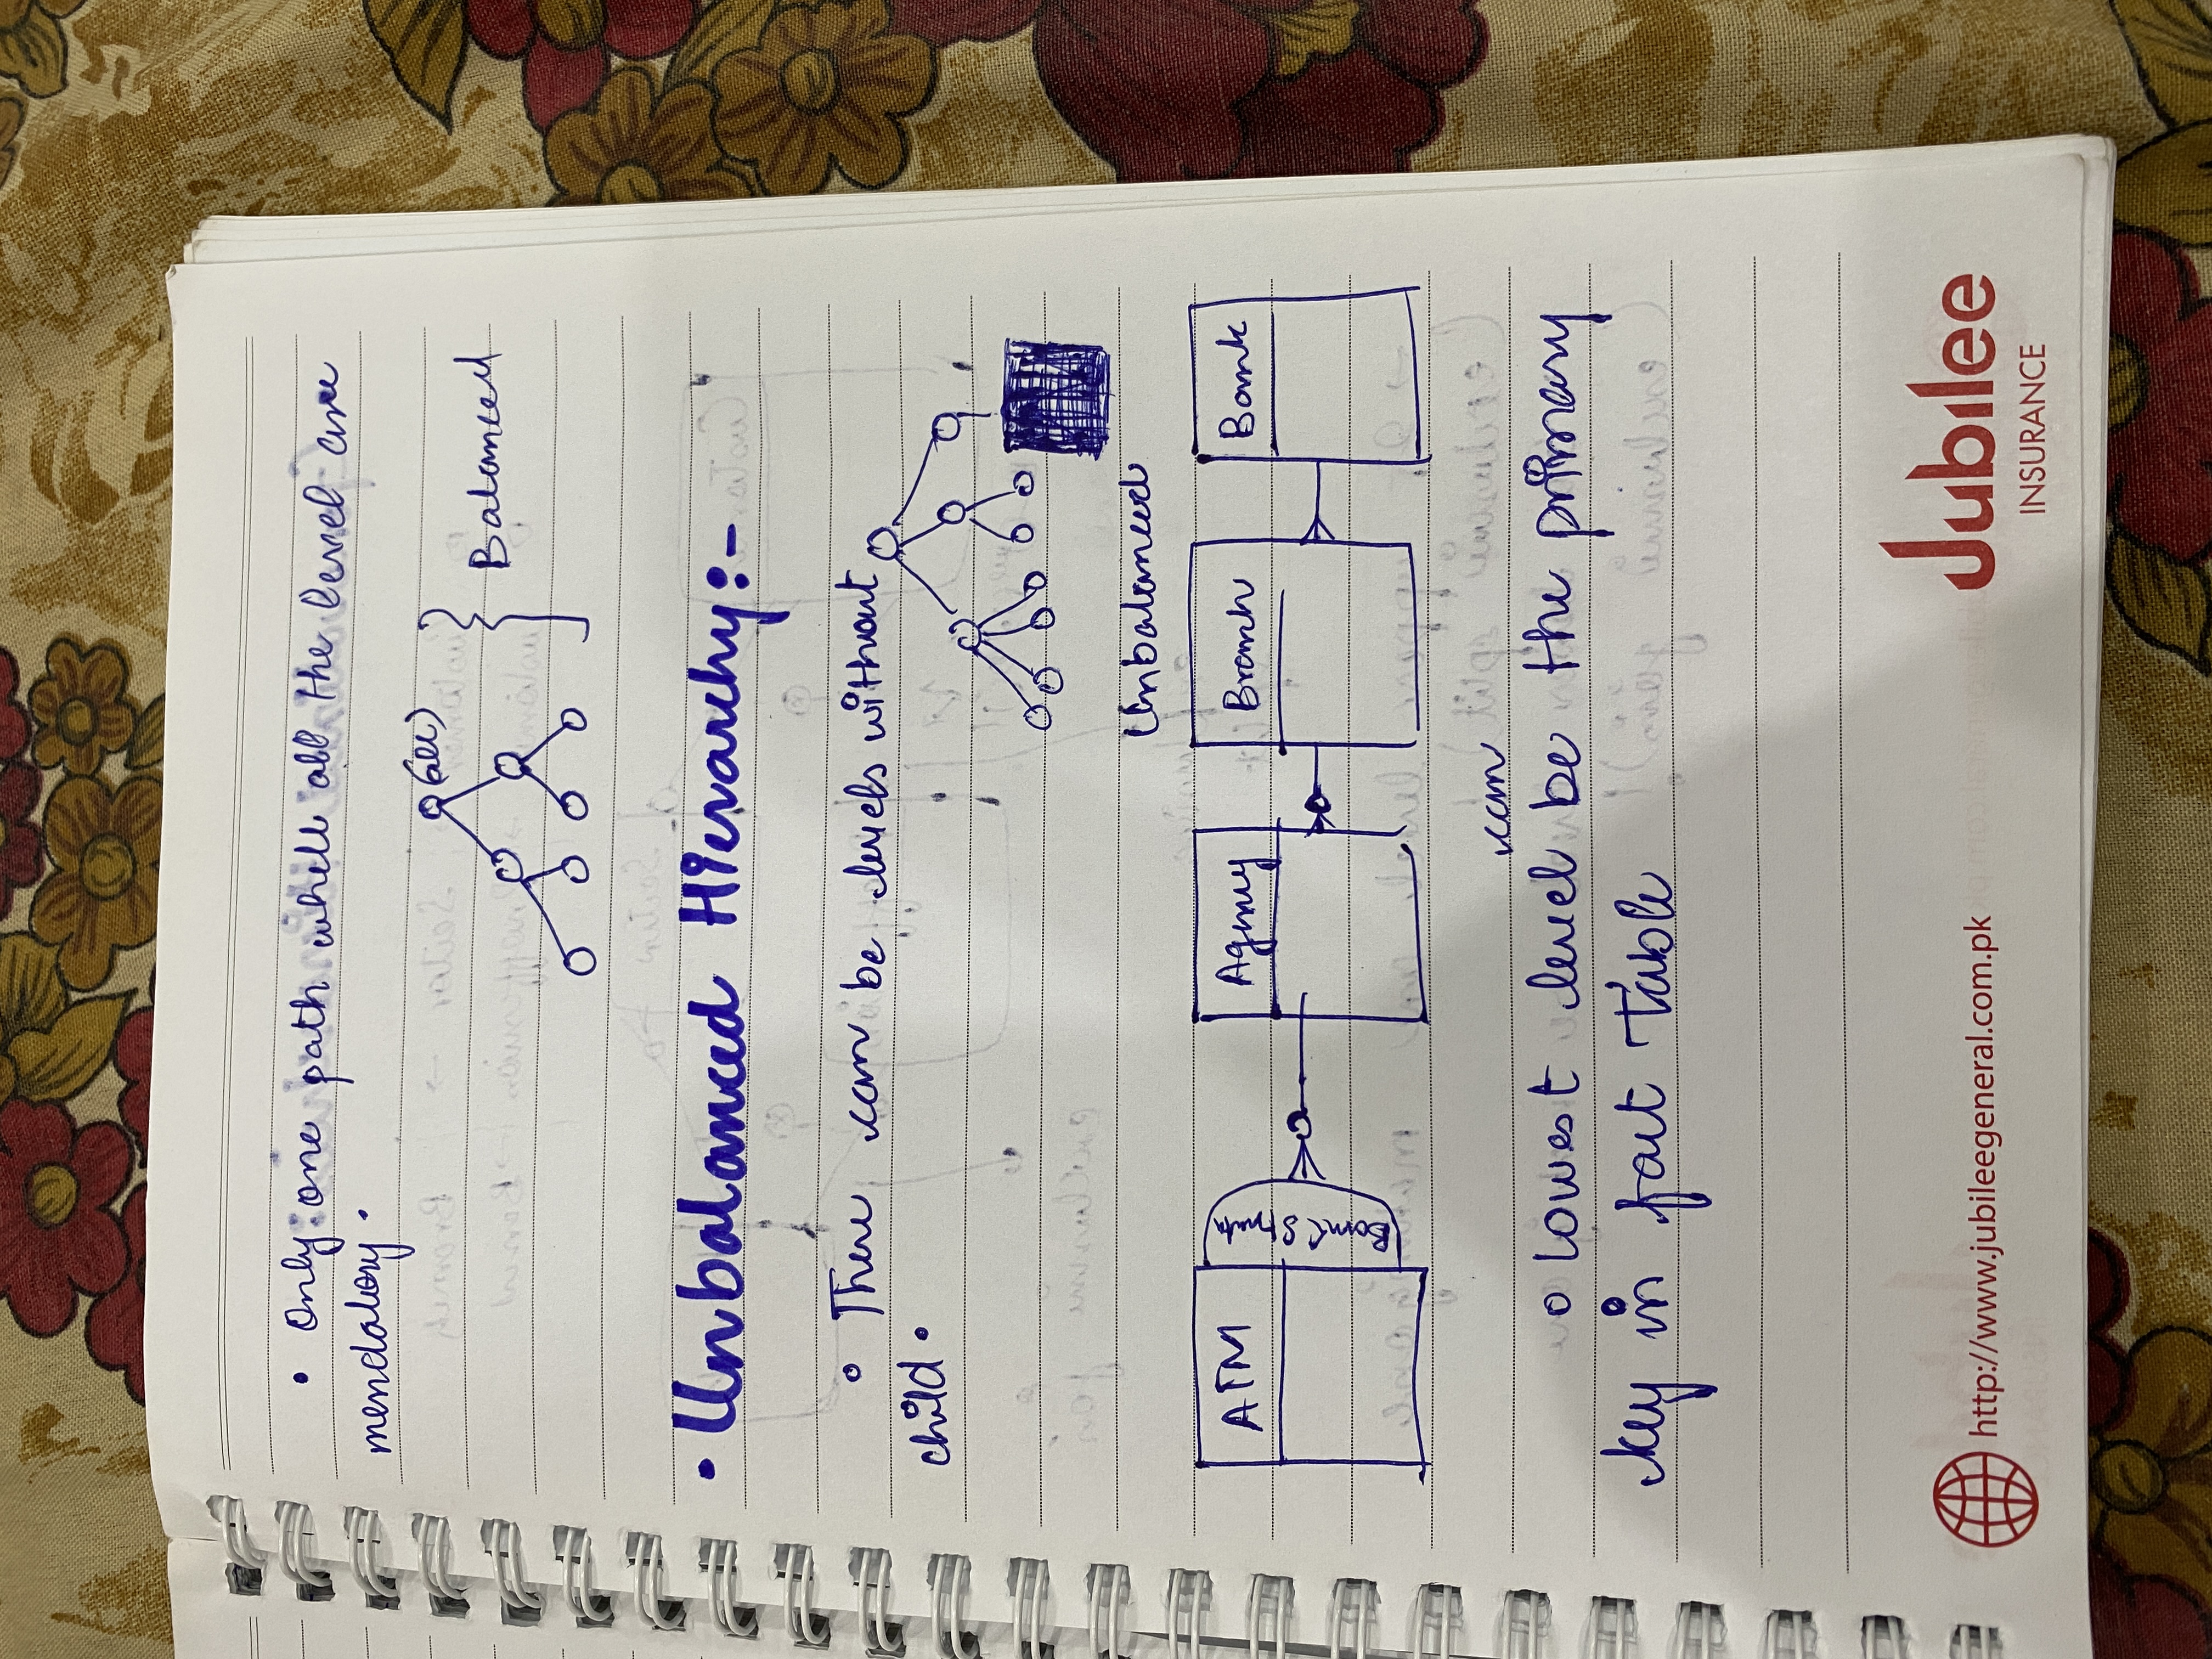 • Only one path where all the level are
mendatory.
(all)
Balanced
• Unbalanced Hierarchy:-
○ There can be levels without
child.
Unbalanced
ATM
Agency
Branch
Bank
can
○ lowest level be the primary
key in fact Table
http://www.jubileegeneral.com.pk
Jubilee
INSURANCE